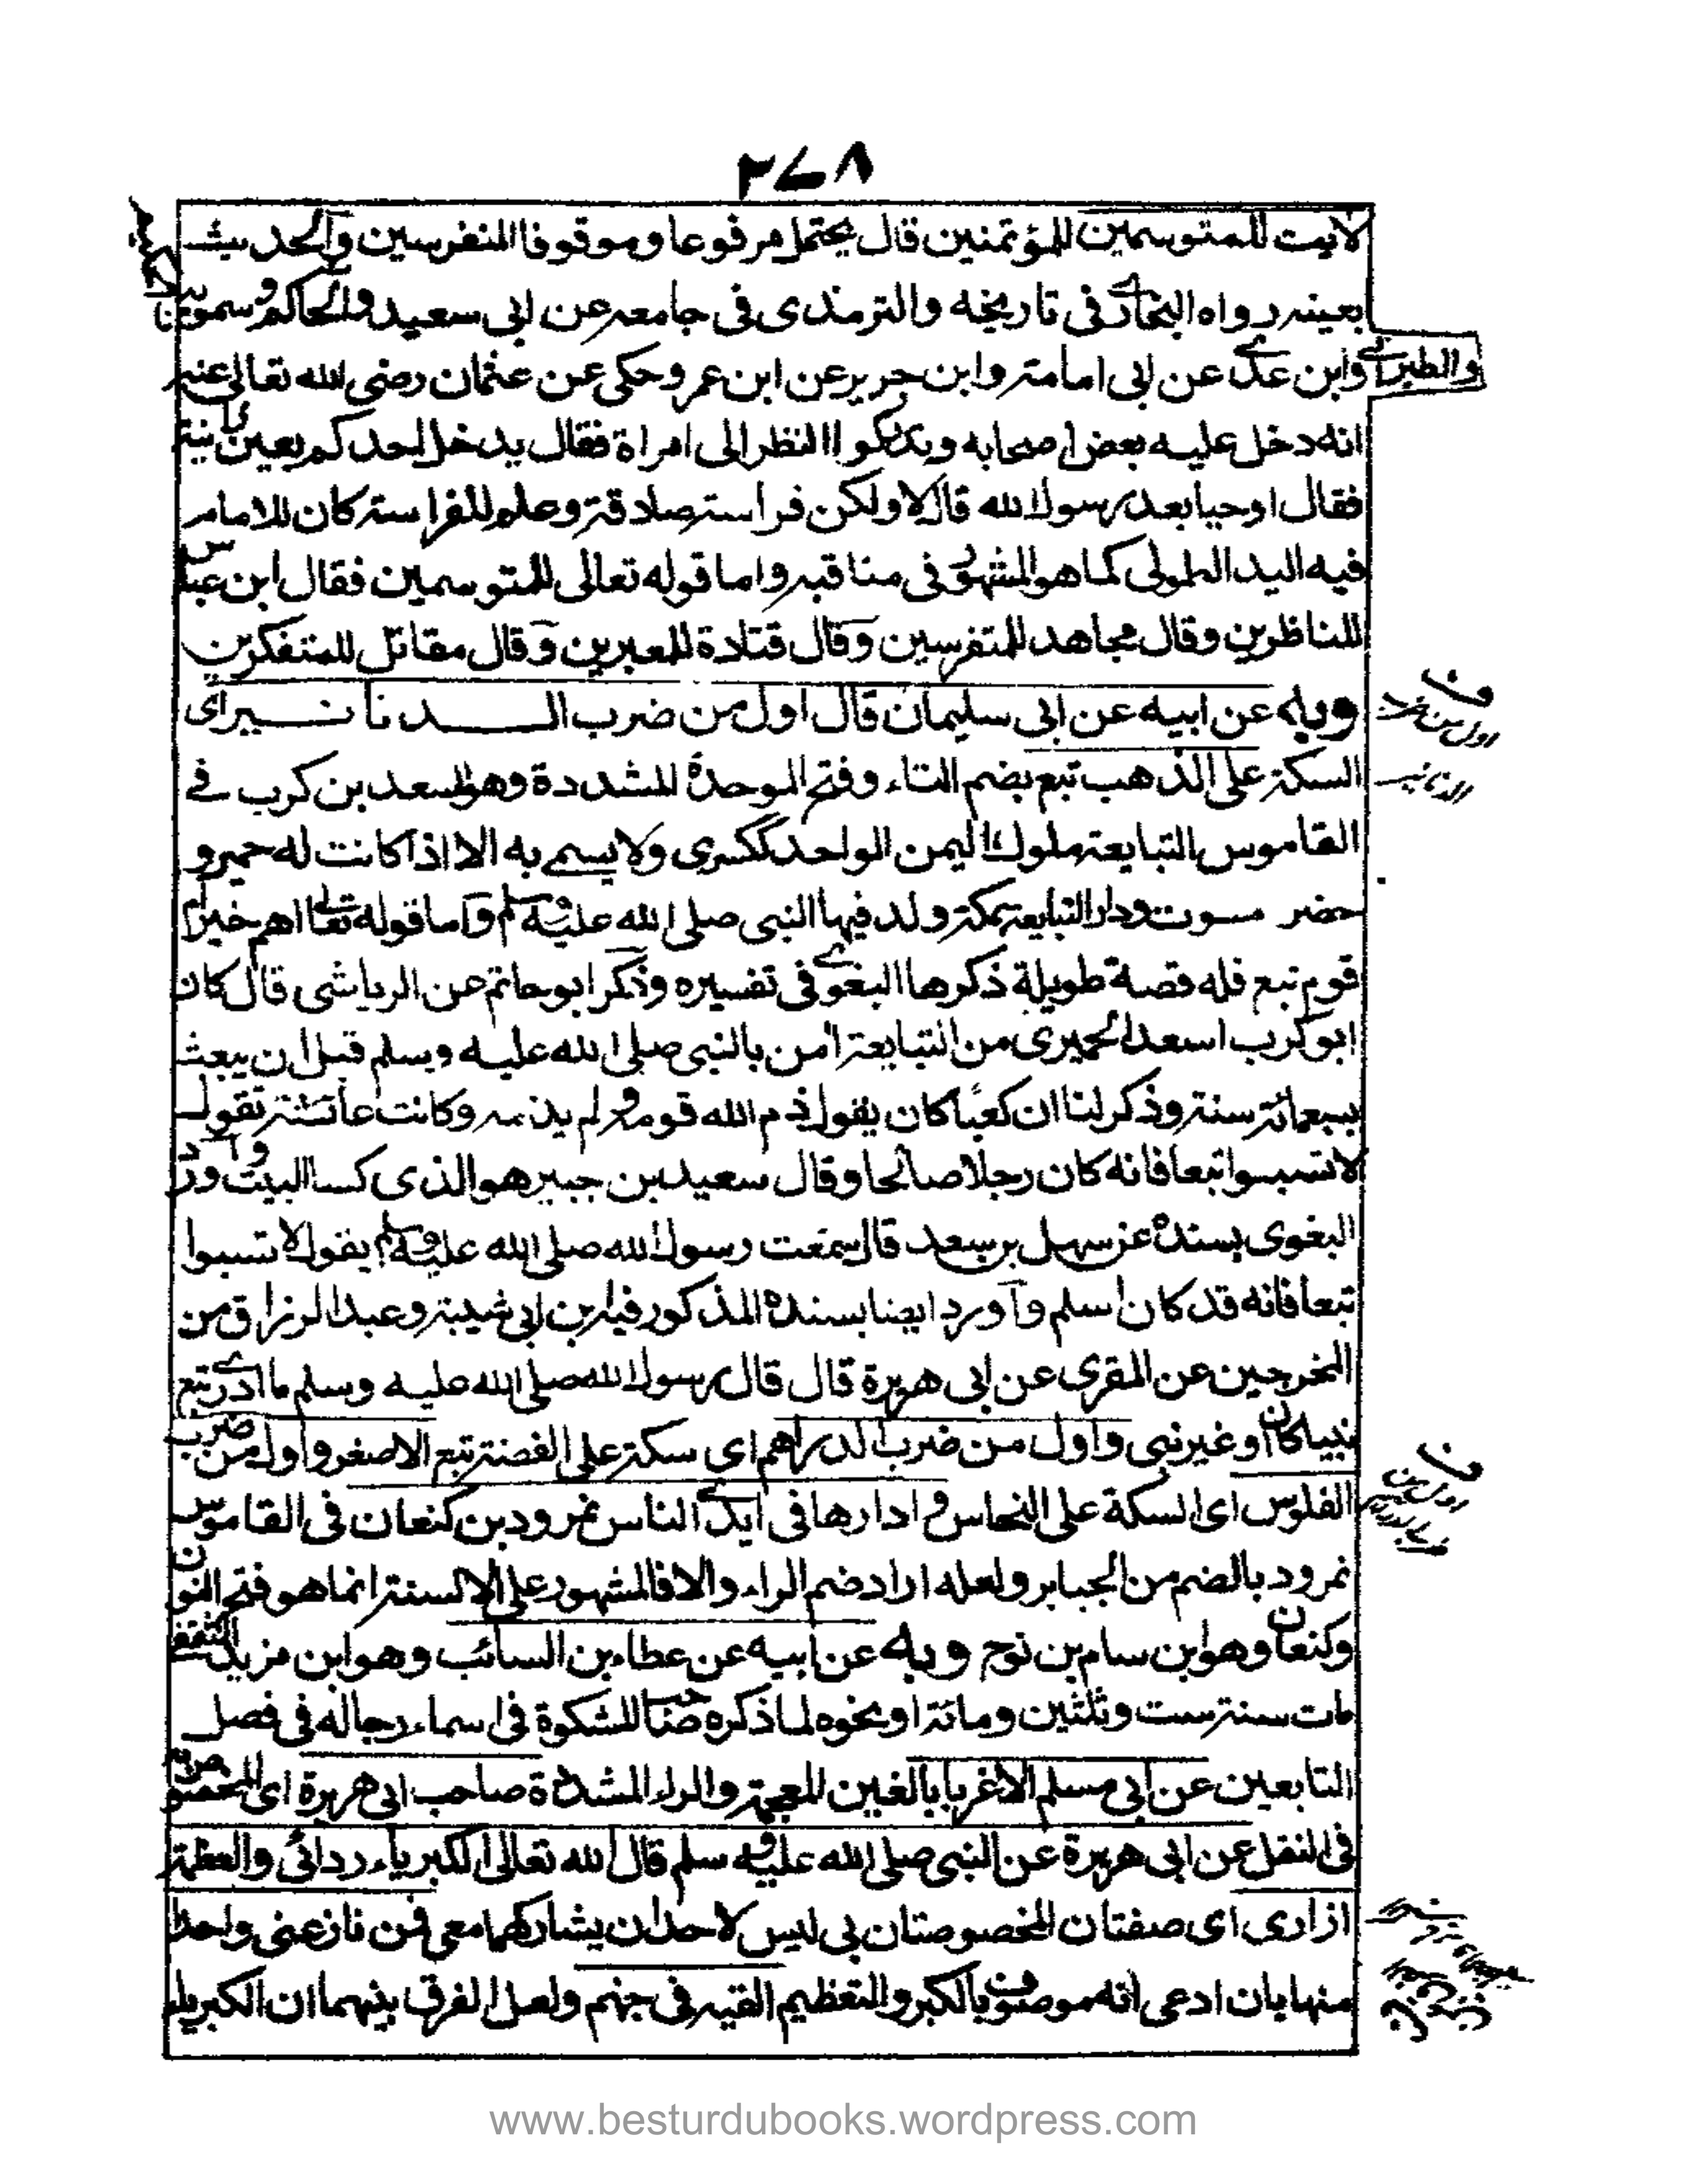 ٢٧٨
لايت للمتوسمين للمؤتمنين قال يحتمل مرفوعا وموقوفا المتفرسين والحديث
بعينه رواه البخاري في تاريخه والترمذى فى جامعه عن ابى سعيد والحاكم وسمويه
والطبراني وابن عدي عن ابى امامة وابن جرير عن ابن عمر وحكى عن عثمان رضى الله تعالى عنه
انه دخل عليه بعض اصحابه وتكوا النظر الى امراة فقال يدخل احدكم بعين زانية
فقال اوحيا بعد رسول الله قال لا ولكن فراسة صادقة وعلم الفراسة كان للامام
فيه اليد الطولى كما هو المشهور فى مناقبه واما قوله تعالى للمتوسمين فقال ابن عباس
للناظرين وقال مجاهد للمتفرسين وقال قتادة للمعبرين وقال مقاتل للمتفكرين
وبه عن ابيه عن ابى سليمان قال اول من ضرب الدنانير اى
السكة على الذهب تبع بضم التاء وفتح الموحدة المشددة وهو اسعد بن كرب فے
القاموس التبابعة ملوك اليمن الواحد ككسرى ولا يسمى به الا اذا كانت له حمير و
حضر موت ودار التبابعة بمكة ولد فيها النبى صلى الله عليه وسلم واما قوله تعالى اهم خير ام
قوم تبع فله قصة طويلة ذكرها البغوي فى تفسيره وذكر ابو حاتم عن الرياشى قال كان
ابو كرب اسعد الحميرى من التبابعة امن بالنبى صلى الله عليه وسلم قبل ان يبعث
بسبعمائة سنة وذكر لنا ان كعبا كان يقول ذم الله قومه ولم يذمه وكانت عائشة تقول
لا تسبوا تبعا فانه كان رجلا صالحا وقال سعيد بن جبير هو الذى كسا البيت واورد
البغوى بسنده عن سهل بن سعد قال سمعت رسول الله صلى الله عليه وسلم يقول لا تسبوا
تبعا فانه قد كان اسلم وآورد ايضا بسنده المذكور فيه ابن ابى شيبة وعبد الرزاق من
المخرجين عن المقرى عن ابى هريرة قال قال رسول الله صلى الله عليه وسلم ما ادري تبع
نبيا كان او غير نبى واول من ضرب الدراهم اى سكة على الفضة تبع الاصغر واول من ضرب
الفلوس اى السكة على النحاس وادارها فى ايدي الناس نمرود بن كنعان فى القاموس
نمرود بالضم من الجبابر ولعله اراد ضم الراء والا فالمشهور على الالسنة انما هو فتح النون
وكنعان وهو ابن سام بن نوح وبه عن ابيه عن عطاء بن السائب وهو ابن مزيد الثقفى
مات سنة ست وثلثين ومائة او نحوه لما ذكره صاحب المشكوة فى اسماء رجاله فى فصل
التابعين عن ابى مسلم الاغر بابالغين المعجمة والراء المشددة صاحب ابى هريرة اى المخصوص
فى النقل عن ابى هريرة عن النبى صلى الله عليه وسلم قال الله تعالى الكبرياء ردائى والعظمة
ازارى اى صفتان المخصوصتان بى ليس لاحد ان يشاركهما معى فمن نازعنى واحدا
منها بان ادعى انه موصوف بالكبر والتعظيم القيه فى جهنم ولعل الفرق بينهما ان الكبرياء
www.besturdubooks.wordpress.com